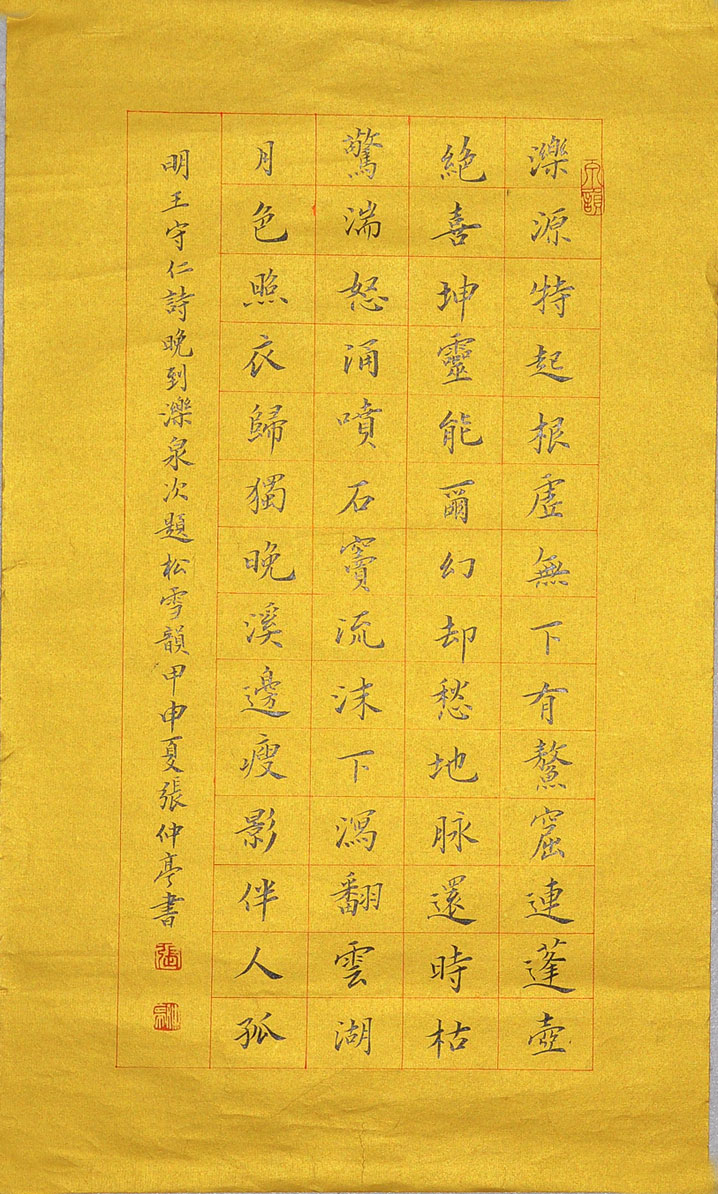 濼源特起根虛無下有鰲窟連蓬壺
絶喜坤靈能爾幻却愁地脉還時枯
驚湍怒涌噴石竇流沫下瀉翻雲湖
月色照衣歸獨晚溪邊瘦影伴人孤
明王守仁詩晚到濼泉次題松雪韻甲申夏張仲亭書